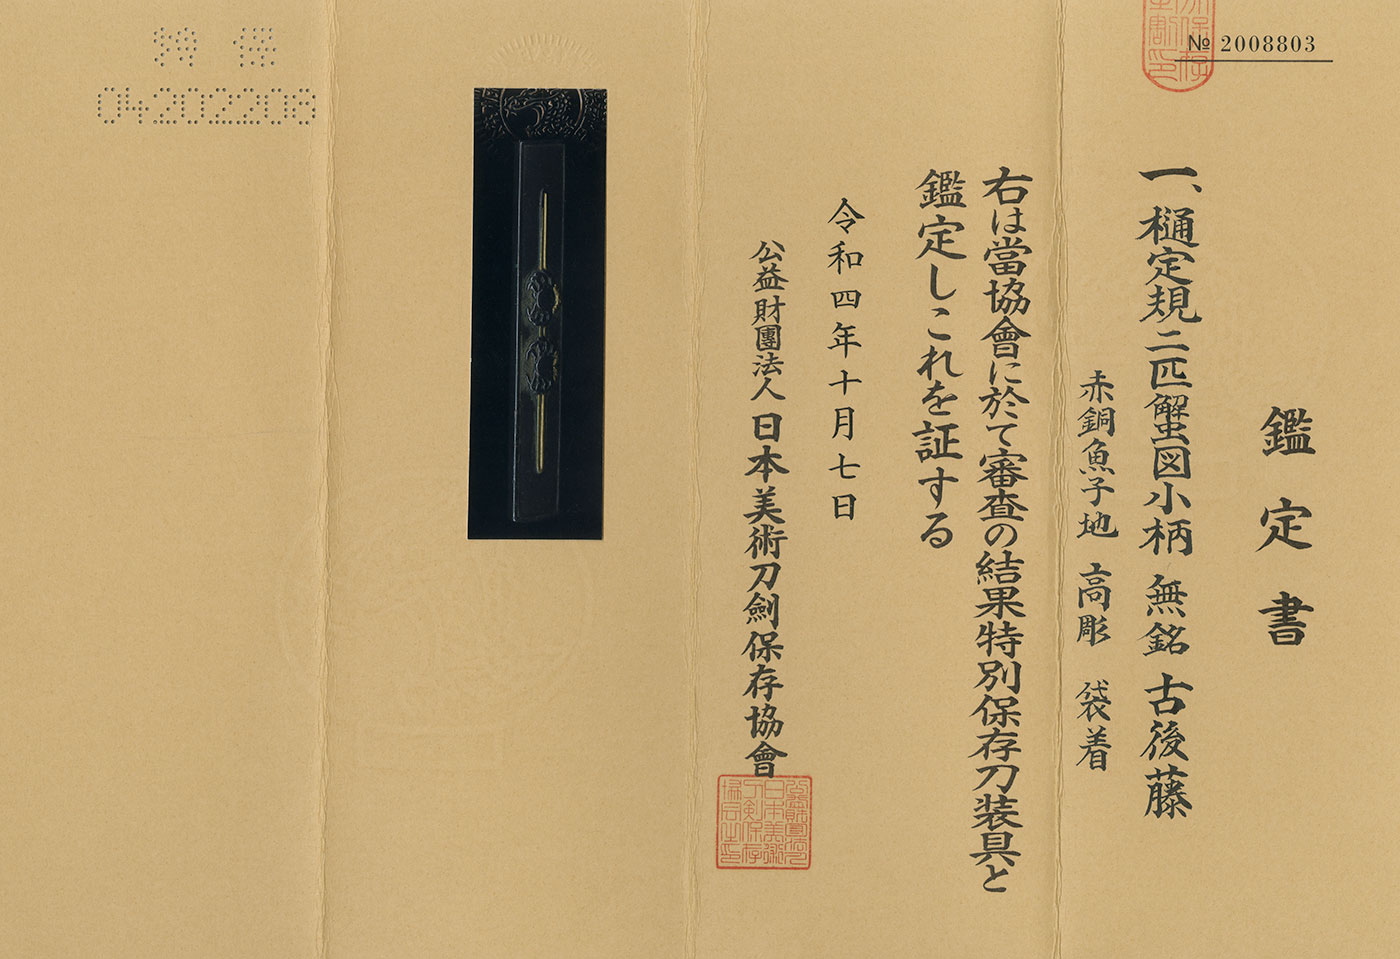 № 2008803
鑑定書
一、樋定規二匹蟹図小柄 無銘 古後藤
赤銅魚子地 高彫 袋着
右は當協會に於て審査の結果特別保存刀装具と
鑑定しこれを証する
令和四年十月七日
公益財團法人 日本美術刀劍保存協會
特 保
04202208